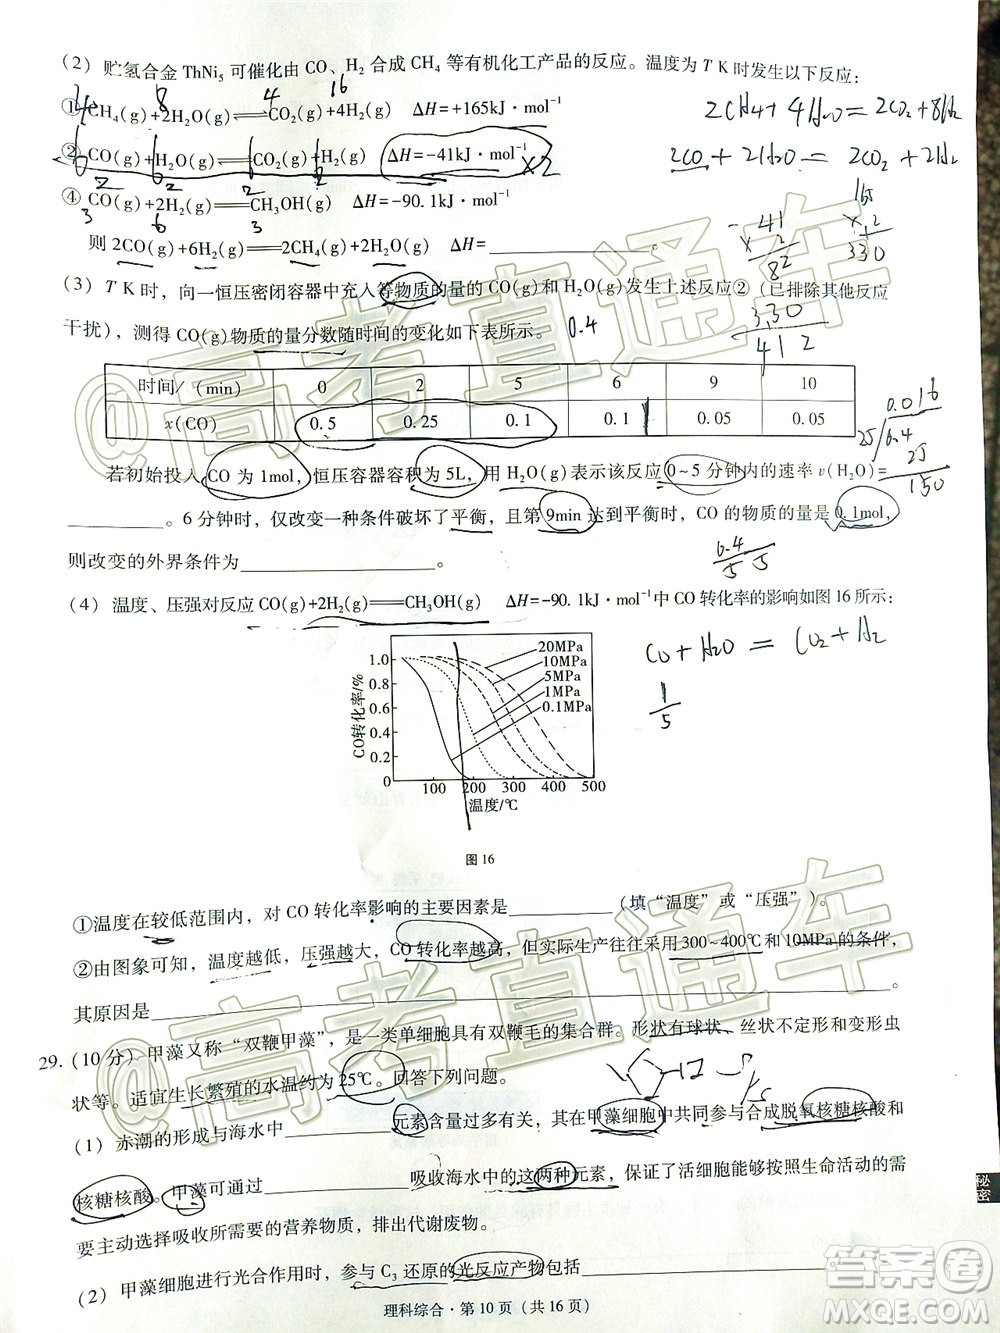 (2) 贮氢合金 ThNi5 可催化由 CO、H2 合成 CH4 等有机化工产品的反应。温度为 T K 时发生以下反应:
①CH4(g)+2H2O(g)⇌CO2(g)+4H2(g) ΔH=+165kJ·mol⁻¹
②CO(g)+H2O(g)⇌CO2(g)+H2(g) ΔH=-41kJ·mol⁻¹ ×2
④CO(g)+2H2(g)⇌CH3OH(g) ΔH=-90.1kJ·mol⁻¹
则 2CO(g)+6H2(g)══2CH4(g)+2H2O(g) ΔH=______。
2CH4+4H2O=2CO2+8H2
2CO+2H2O=2CO2+2H2
-41
×2
82
165
×2
330
(3) T K 时,向一恒压密闭容器中充入等物质的量的 CO(g) 和 H2O(g) 发生上述反应②(已排除其他反应
干扰),测得 CO(g) 物质的量分数随时间的变化如下表所示。 0.4
330
412
时间/(min) 0 2 5 6 9 10
x(CO) 0.5 0.25 0.1 0.1 0.05 0.05
0.016
25 0.4
25
150
若初始投入 CO 为 1mol,恒压容器容积为 5L,用 H2O(g) 表示该反应 0~5 分钟内的速率 v(H2O)=
______。6 分钟时,仅改变一种条件破坏了平衡,且第 9min 达到平衡时,CO 的物质的量是 0.1mol,
则改变的外界条件为______。
0.4
5 5
(4) 温度、压强对反应 CO(g)+2H2(g)══CH3OH(g) ΔH=-90.1kJ·mol⁻¹ 中 CO 转化率的影响如图 16 所示:
CO+H2O=CO2+H2
1
5
CO转化率/%
1.0
0.8
0.6
0.4
0.2
0
20MPa
10MPa
5MPa
1MPa
0.1MPa
100 200 300 400 500
温度/℃
图 16
①温度在较低范围内,对 CO 转化率影响的主要因素是______(填“温度”或“压强”)。
②由图象可知,温度越低,压强越大,CO 转化率越高,但实际生产往往采用 300~400℃ 和 10MPa 的条件,
其原因是______。
29. (10 分) 甲藻又称“双鞭甲藻”,是一类单细胞具有双鞭毛的集合群。形状有球状、丝状不定形和变形虫
状等。适宜生长繁殖的水温约为 25℃。回答下列问题。
(1) 赤潮的形成与海水中______元素含量过多有关,其在甲藻细胞中共同参与合成脱氧核糖核酸和
核糖核酸。甲藻可通过______吸收海水中的这两种元素,保证了活细胞能够按照生命活动的需
要主动选择吸收所需要的营养物质,排出代谢废物。
(2) 甲藻细胞进行光合作用时,参与 C3 还原的光反应产物包括______
理科综合·第 10 页(共 16 页)
秘密
@高考直通车
@高考直通车
答案圈
MXQE.COM